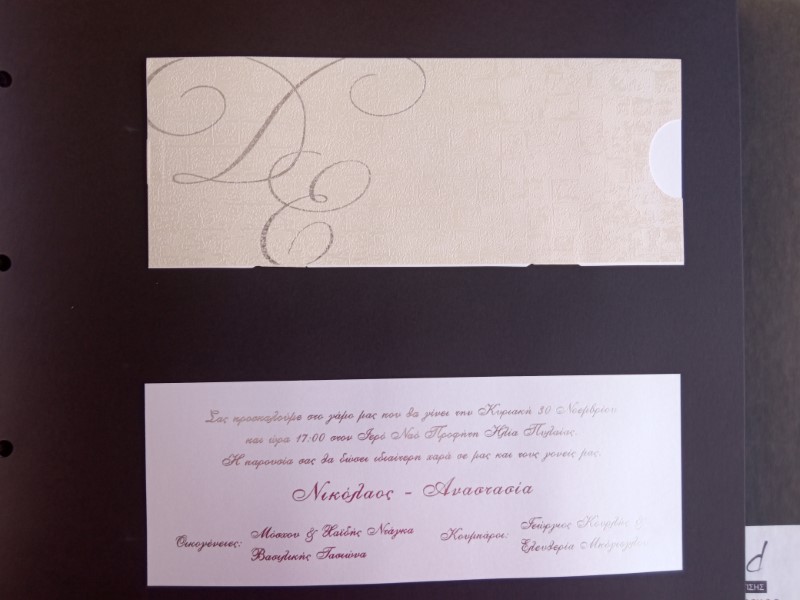 D E
Σας προσκαλούμε στο γάμο μας που θα γίνει την Κυριακή 30 Νοεμβρίου
και ώρα 17:00 στον Ιερό Ναό Προφήτη Ηλία Πυλαίας.
Η παρουσία σας θα δώσει ιδιαίτερη χαρά σε μας και τους γονείς μας.
Νικόλαος - Αναστασία
Οικογένειες: Μόσχου & Χαϊδής Ντάγκα
Βασιλικής Τασιώνα
Κουμπάροι: Γεώργιος &
Ελευθερία
d